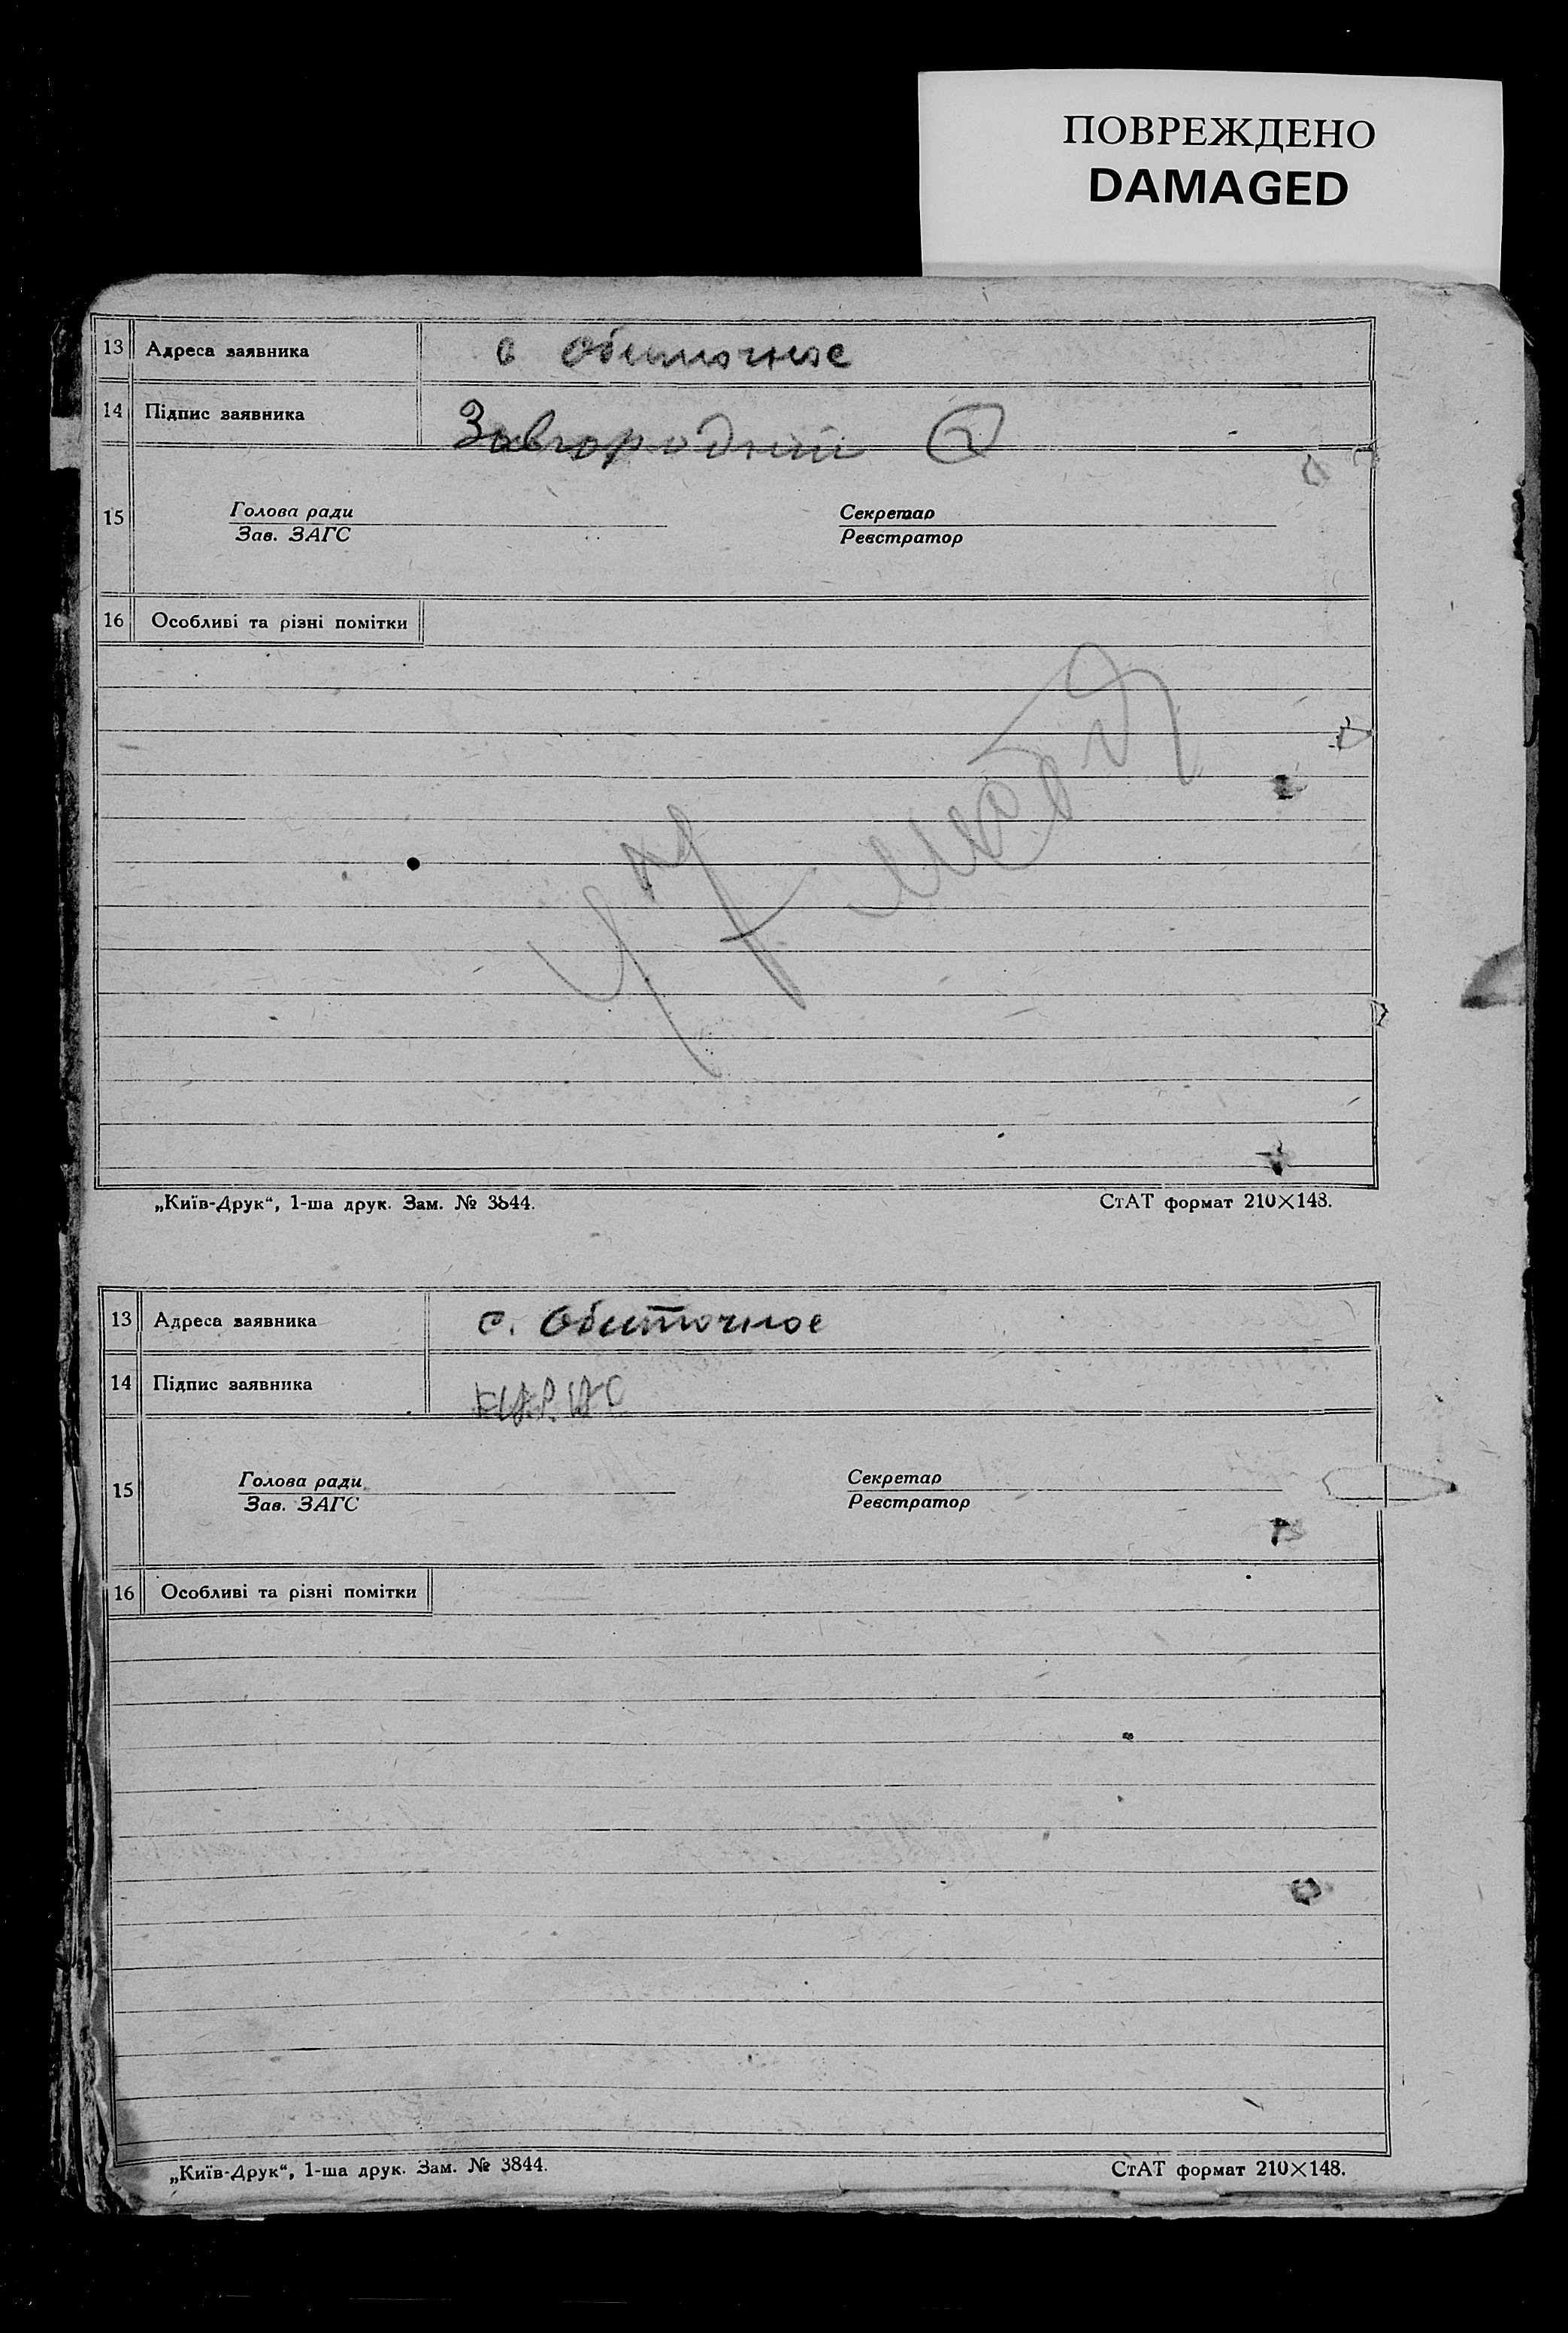 ПОВРЕЖДЕНО
DAMAGED
13 Адреса заявника с Обиточное
14 Підпис заявника Завгородний
15 Голова ради Секретар
Зав. ЗАГС Реєстратор
16 Особливі та різні помітки
„Київ-Друк“, 1-ша друк. Зам. № 3844. СтАТ формат 210×148.
13 Адреса заявника с. Обиточное
14 Підпис заявника
15 Голова ради Секретар
Зав. ЗАГС Реєстратор
16 Особливі та різні помітки
„Київ-Друк“, 1-ша друк. Зам. № 3844. СтАТ формат 210×148.